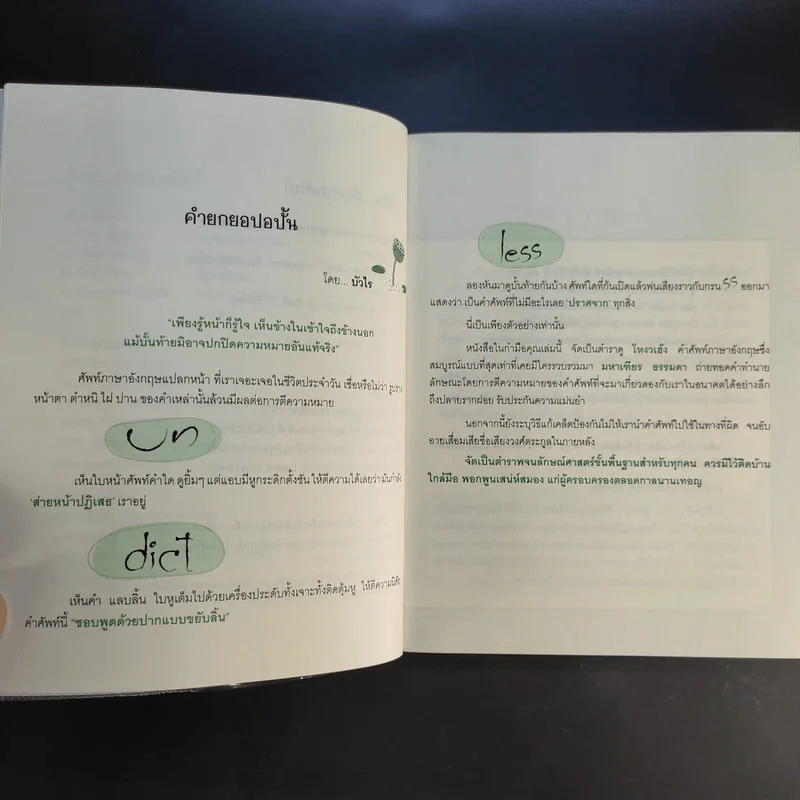 คำยกยอปอปั้น
โดย... บัวไร
"เพียงรู้หน้าก็รู้ใจ เห็นข้างในเข้าใจถึงข้างนอก
แม้บั้นท้ายมิอาจปกปิดความหมายอันแท้จริง"
ศัพท์ภาษาอังกฤษแปลกหน้า ที่เราเจอะเจอในชีวิตประจำวัน เชื่อหรือไม่ว่า รูปร่าง
หน้าตา ตำหนิ ไฝ ปาน ของคำเหล่านั้นล้วนมีผลต่อการตีความหมาย
un
เห็นใบหน้าศัพท์คำใด ดูยิ้มๆ แต่แอบมีหูกระดิกตั้งชัน ให้ตีความได้เลยว่า มันกำลัง
'ส่ายหน้าปฏิเสธ' เราอยู่
dict
เห็นคำ แลบลิ้น ใบหูเต็มไปด้วยเครื่องประดับทั้งเจาะทั้งติดตุ้มหู ให้ตีความนิสัย
คำศัพท์นี้ "ชอบพูดด้วยปากแบบขยับลิ้น"
less
ลองหันมาดูบั้นท้ายกันบ้าง ศัพท์ใดที่ก้นเปิดแล้วพ่นเสียงราวกับกรน ss ออกมา
แสดงว่า เป็นคำศัพท์ที่ไม่มีอะไรเลย 'ปราศจาก' ทุกสิ่ง
นี่เป็นเพียงตัวอย่างเท่านั้น
หนังสือในกำมือคุณเล่มนี้ จัดเป็นตำราดู โหงวเฮ้ง คำศัพท์ภาษาอังกฤษซึ่ง
สมบูรณ์แบบที่สุดเท่าที่เคยมีใครรวบรวมมา มหาเทียร ธรรมดา ถ่ายทอดคำทำนาย
ลักษณะโดยการตีความหมายของคำศัพท์ที่จะมาเกี่ยวดองกับเราในอนาคตได้อย่างลึก
ถึงปลายรากฝอย รับประกันความแม่นยำ
นอกจากนี้ยังระบุวิธีแก้เคล็ดป้องกันไม่ให้เรานำคำศัพท์ไปใช้ในทางที่ผิด จนอับ
อายเสื่อมเสียชื่อเสียงวงศ์ตระกูลในภายหลัง
จัดเป็นตำราพจนลักษณ์ศาสตร์ขั้นพื้นฐานสำหรับทุกคน ควรมีไว้ติดบ้าน
ใกล้มือ พอกพูนเสน่ห์สมอง แก่ผู้ครอบครองตลอดกาลนานเทอญ